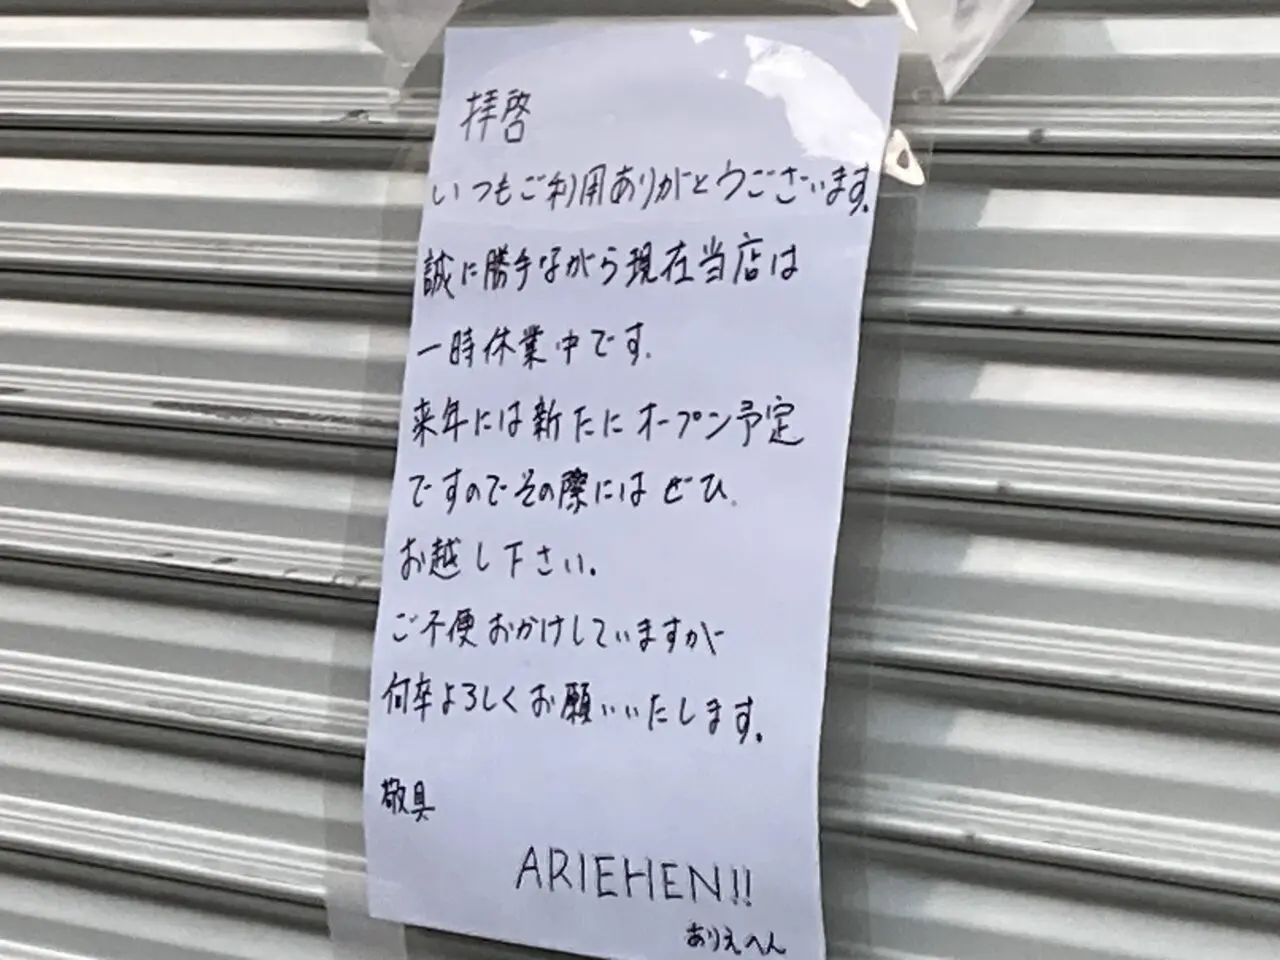 拝啓
いつもご利用ありがとうございます。
誠に勝手ながら現在当店は
一時休業中です。
来年には新たにオープン予定
ですのでその際にはぜひ
お越し下さい。
ご不便おかけしていますが
何卒よろしくお願いいたします。
敬具
ARIEHEN!!
ありえへん